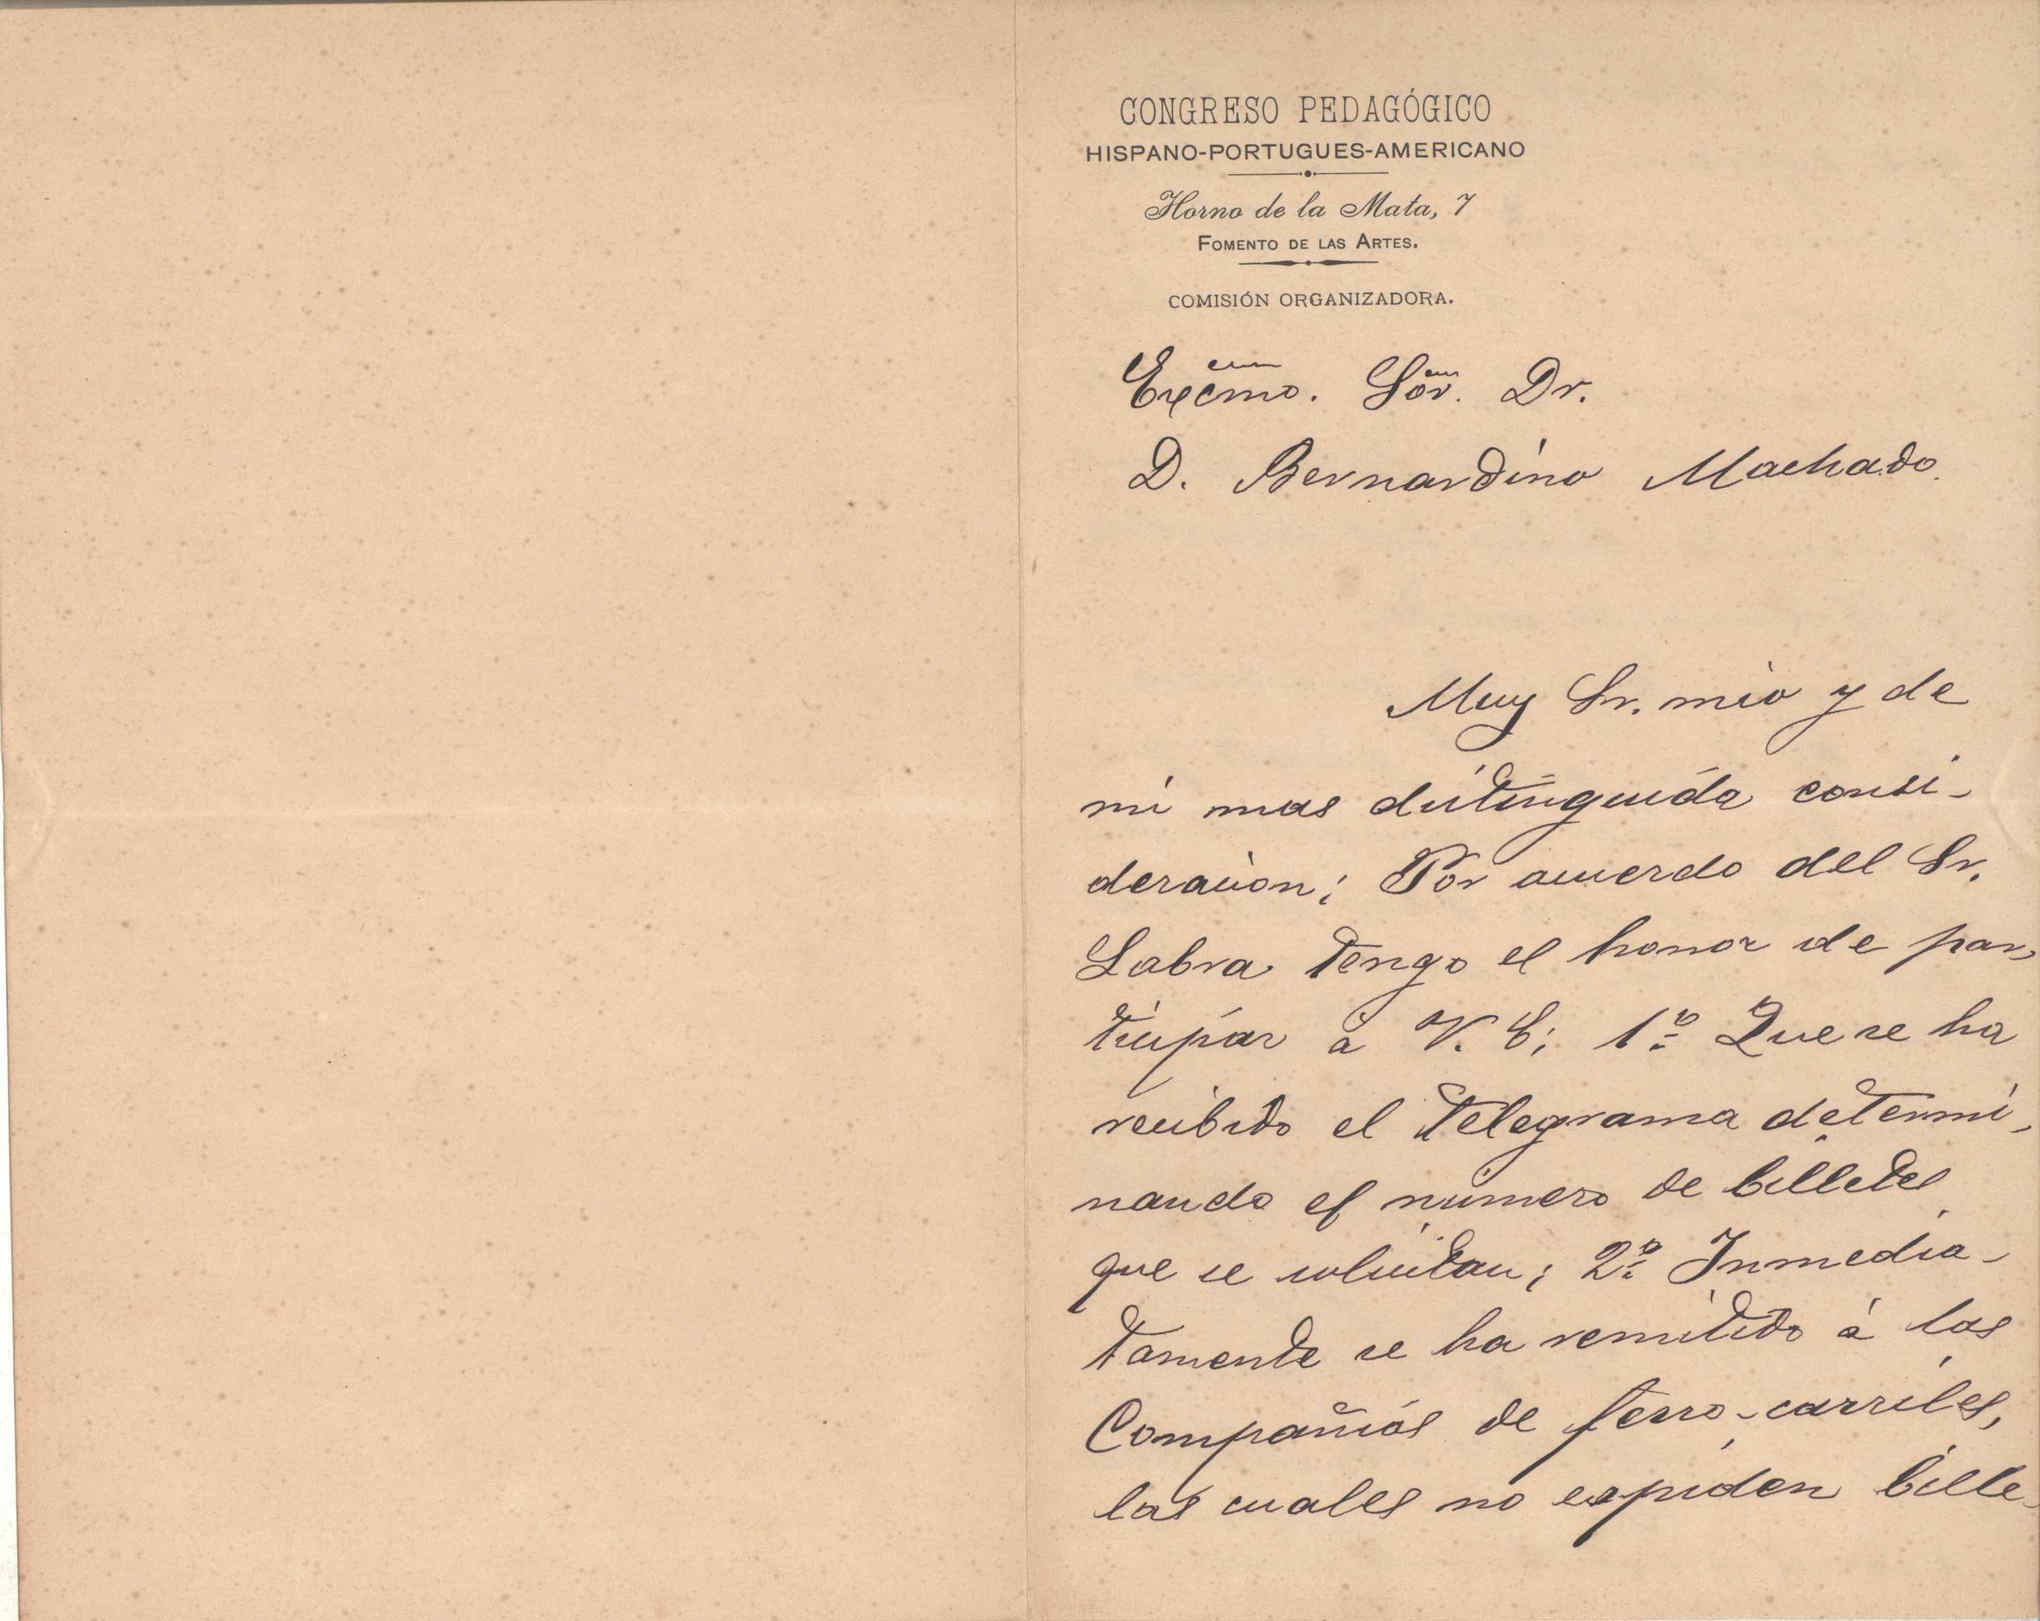 CONGRESO PEDAGÓGICO
HISPANO-PORTUGUES-AMERICANO
Horno de la Mata, 7
FOMENTO DE LAS ARTES.
COMISIÓN ORGANIZADORA.
Excmo. Sor. Dr.
D. Bernardino Machado.
Muy Sr. mio y de
mi mas distinguida consi-
deracion; Por acuerdo del Sr.
Labra tengo el honor de par-
ticipar à V. E; 1º Que se ha
recibido el telegrama determi-
nando el número de billetes
que se solicitan; 2º Inmedia-
tamente se ha remitido á las
Compañias de ferro-carriles,
las cuales no expiden bille-